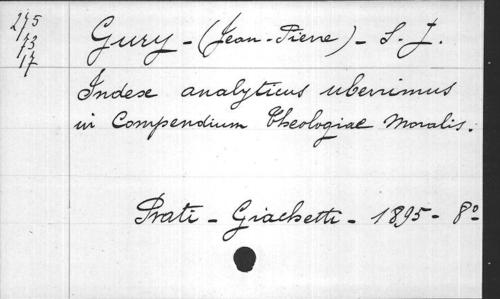 275
73
17
Gury - (Jean-Pierre) - S. J.
Index analyticus uberrimus
in Compendium Theologiae Moralis.
Prati - Giachetti - 1895 - 8º